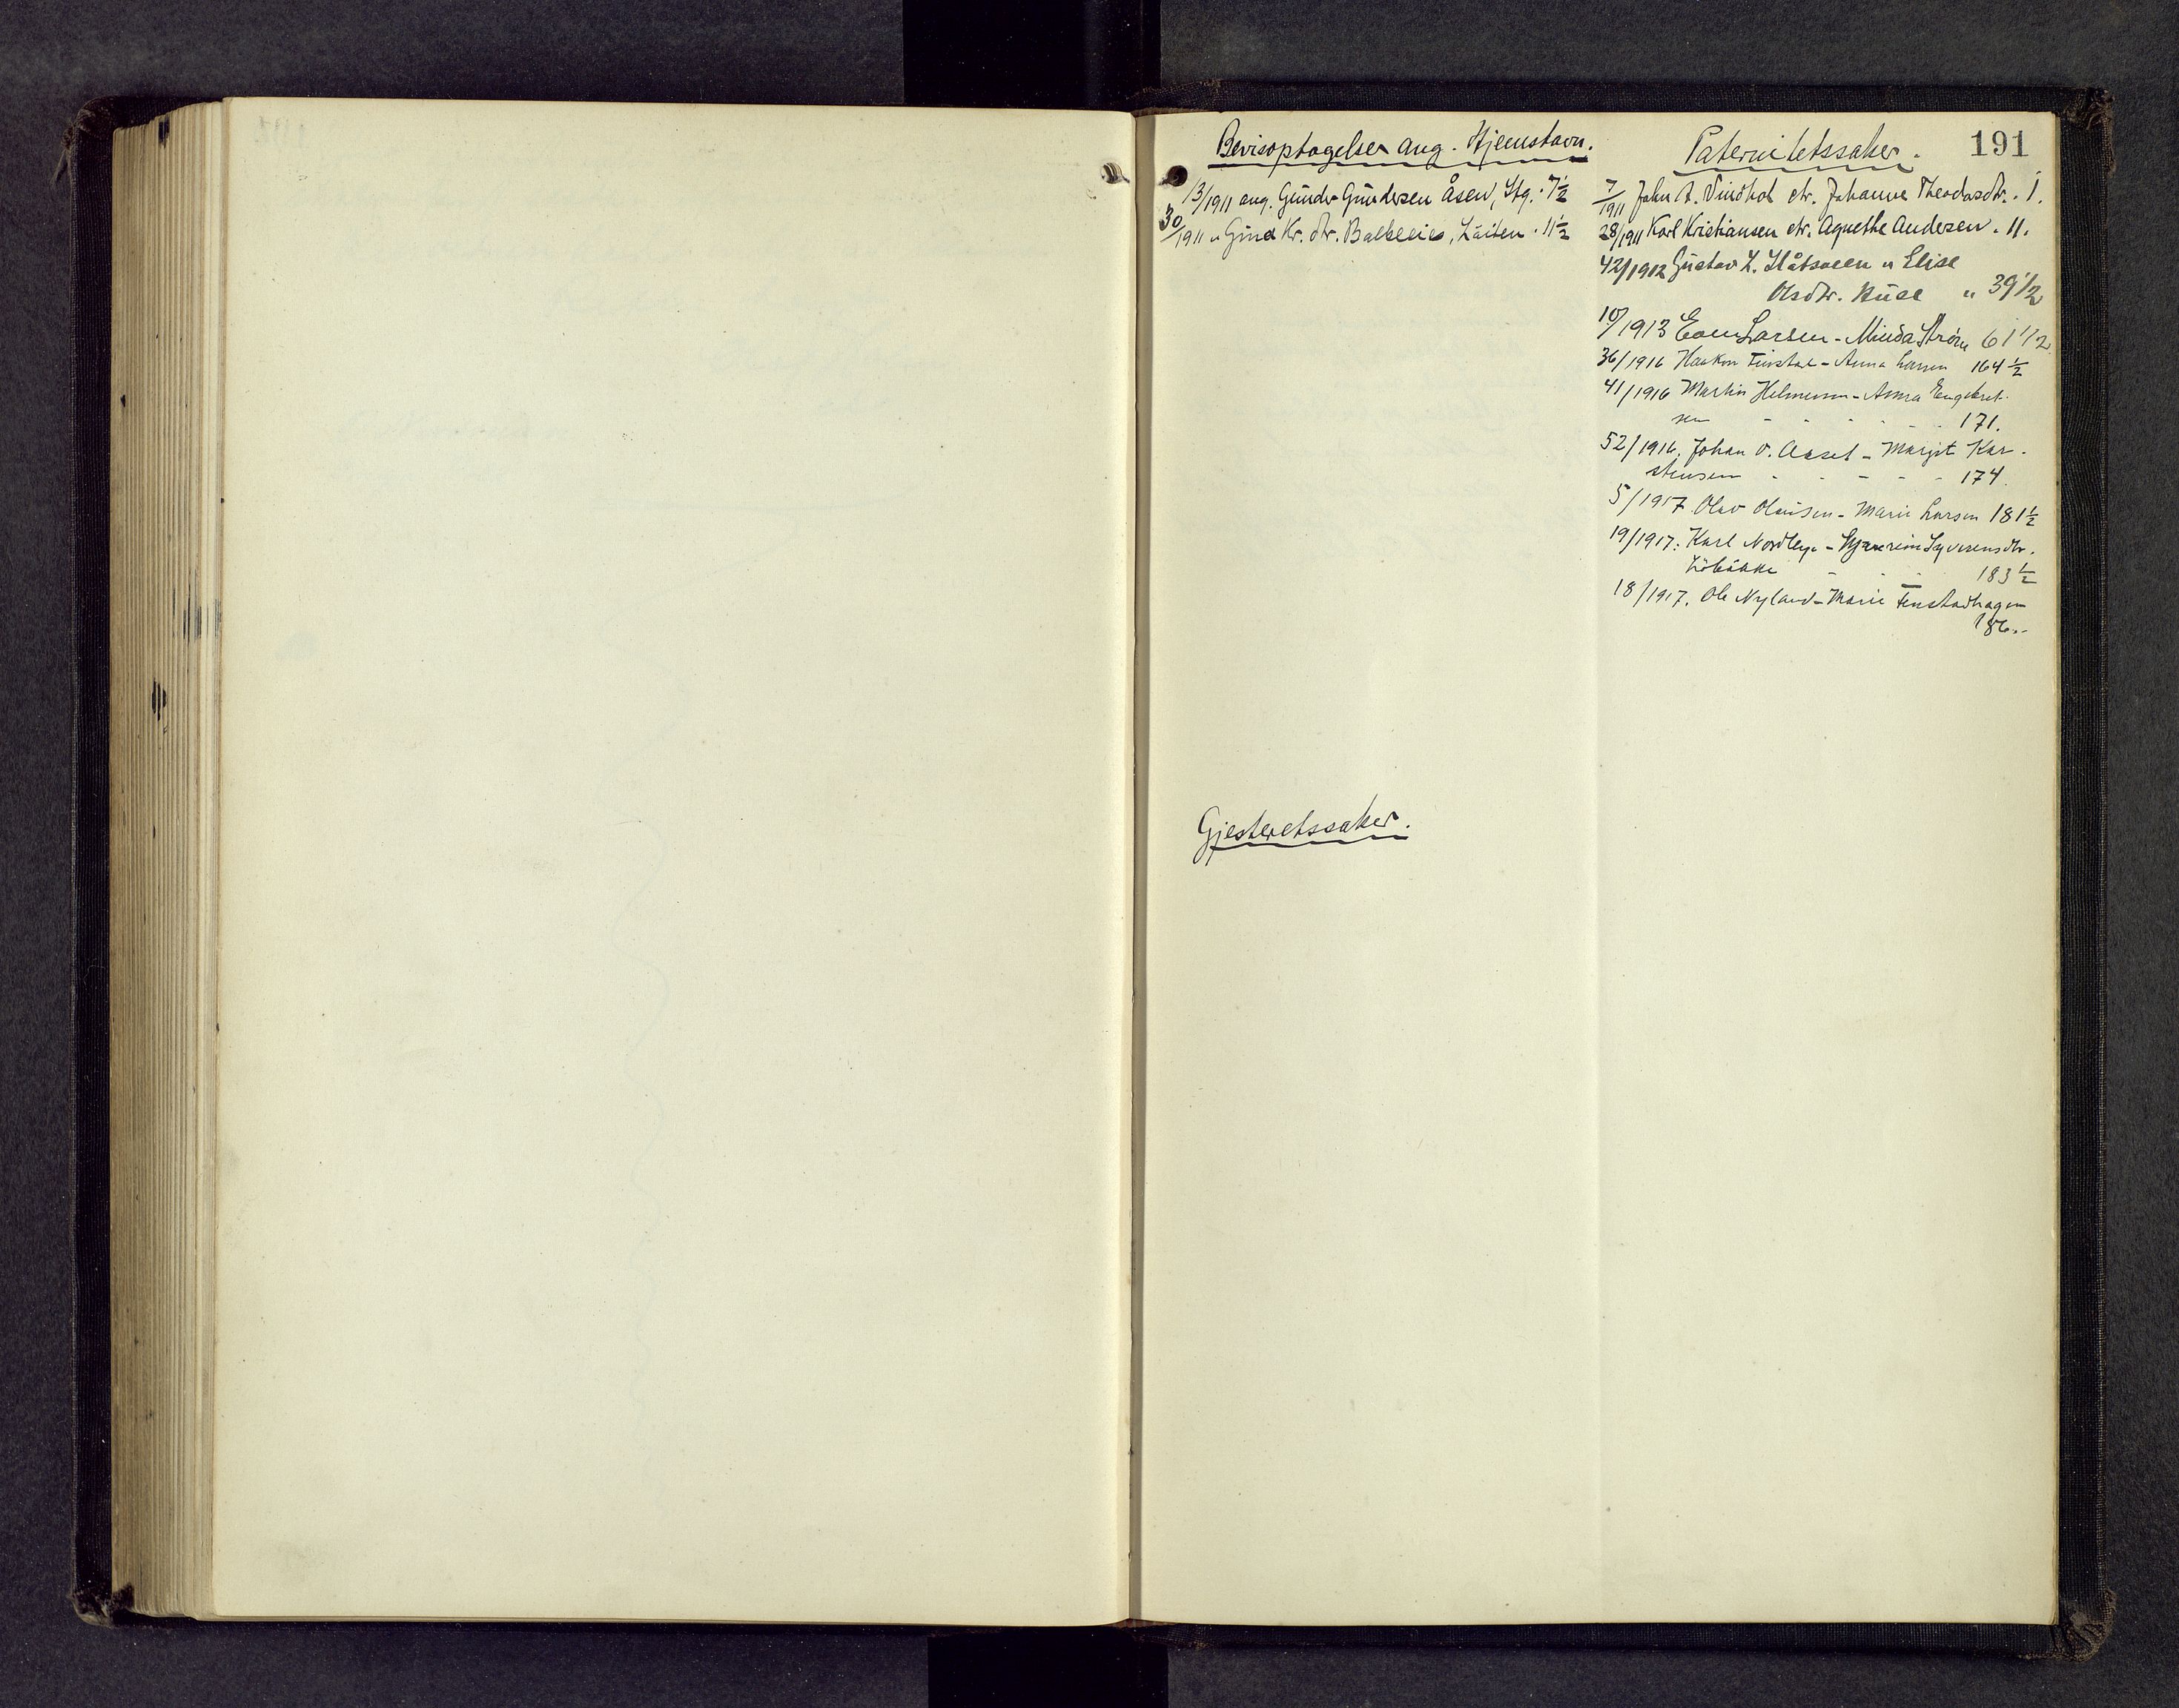 191
Bevisoptagelser ang. Hjemstavn.
13/1911 ang. Gunder Gundersen Åsen, Stg. 7½
30/1911 " Gina Kr. dtr. , Løiten . 11½
Gjesteretssaker.
Paternitetssaker.
7/1911 John A. Vindhol ctr. Johanne Theodorsdtr. . 1.
28/1911 Karl Kristiansen ctr. Agnethe Andersen . 11.
42/1912 Gustav L. " Elise
Olsdtr. " 39 1/2
10/1913 Even Larsen - Minda Strøm 61 1/2
36/1916 Haakon Finstad - Anna Larsen 164½
41/1916 Martin Helmersen - Anna Engebret-
sen - - - - - 171.
52/1916. Johan O. Aaset - Margit Kar-
stensen - - - - - 174.
5/1917 Olav Olaussen - Marie Larsen 181½
19/1917: Karl - Syversensdtr.
- - - 183½
18/1917. Ole Nyland - Marie Fenstadhagen
186.-